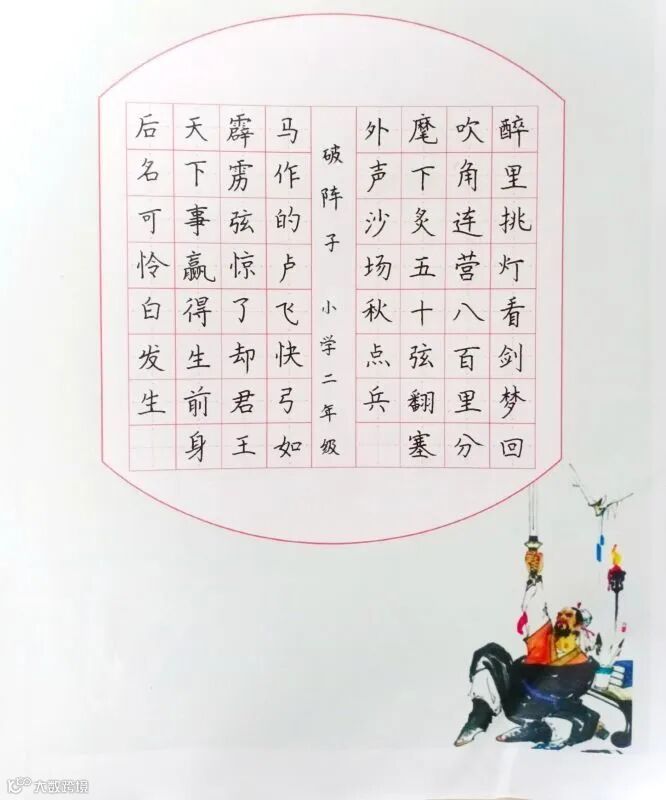 醉里挑灯看剑梦回
吹角连营八百里分
麾下炙五十弦翻塞
外声沙场秋点兵
破阵子 小学二年级
马作的卢飞快弓如
霹雳弦惊了却君王
天下事赢得生前身
后名可怜白发生
大数跨境